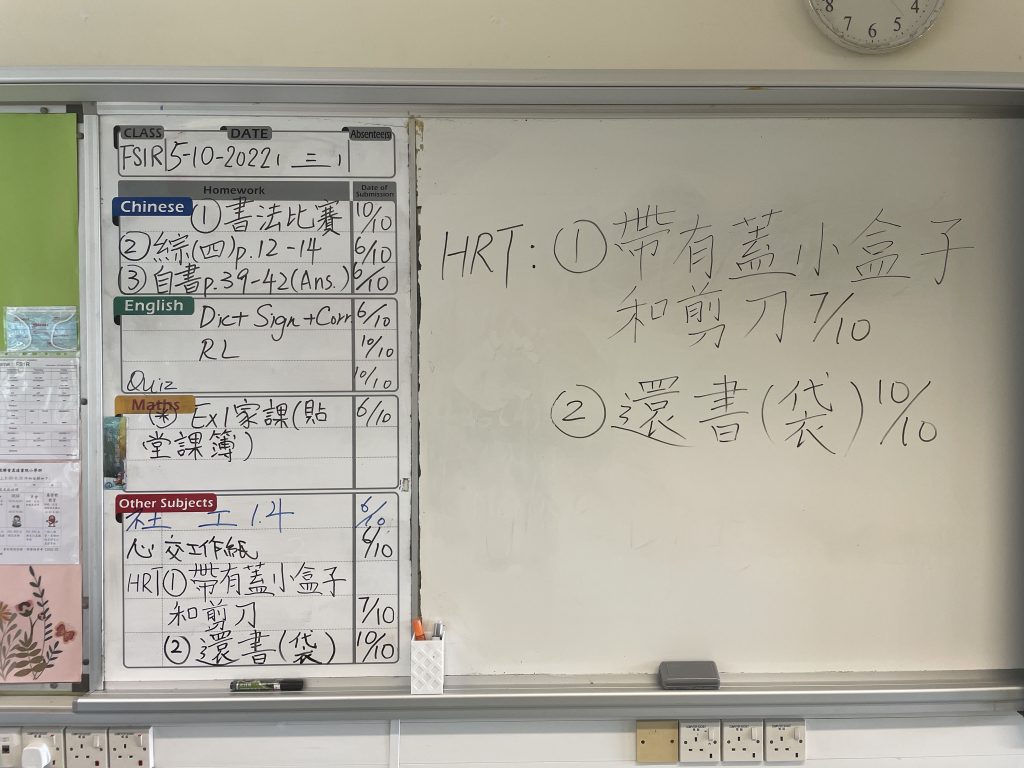 8 4
7 6 5
CLASS DATE Absenteers
FSIR 5-10-2022 (三)
Homework Date of Submission
Chinese ① 書法比賽 10/10
② 綜(四)p.12-14 6/10
③ 自書p.39-42(Ans.) 6/10
English Dict Sign+Corr 6/10
RL 10/10
Quiz 10/10
Maths Ex1家課(貼 6/10
堂課簿)
Other Subjects
社 工1.4 6/10
心 交工作紙 6/10
HRT ① 帶有蓋小盒子
和剪刀 7/10
② 還書(袋) 10/10
HRT: ① 帶有蓋小盒子
和剪刀 7/10
② 還書(袋) 10/10